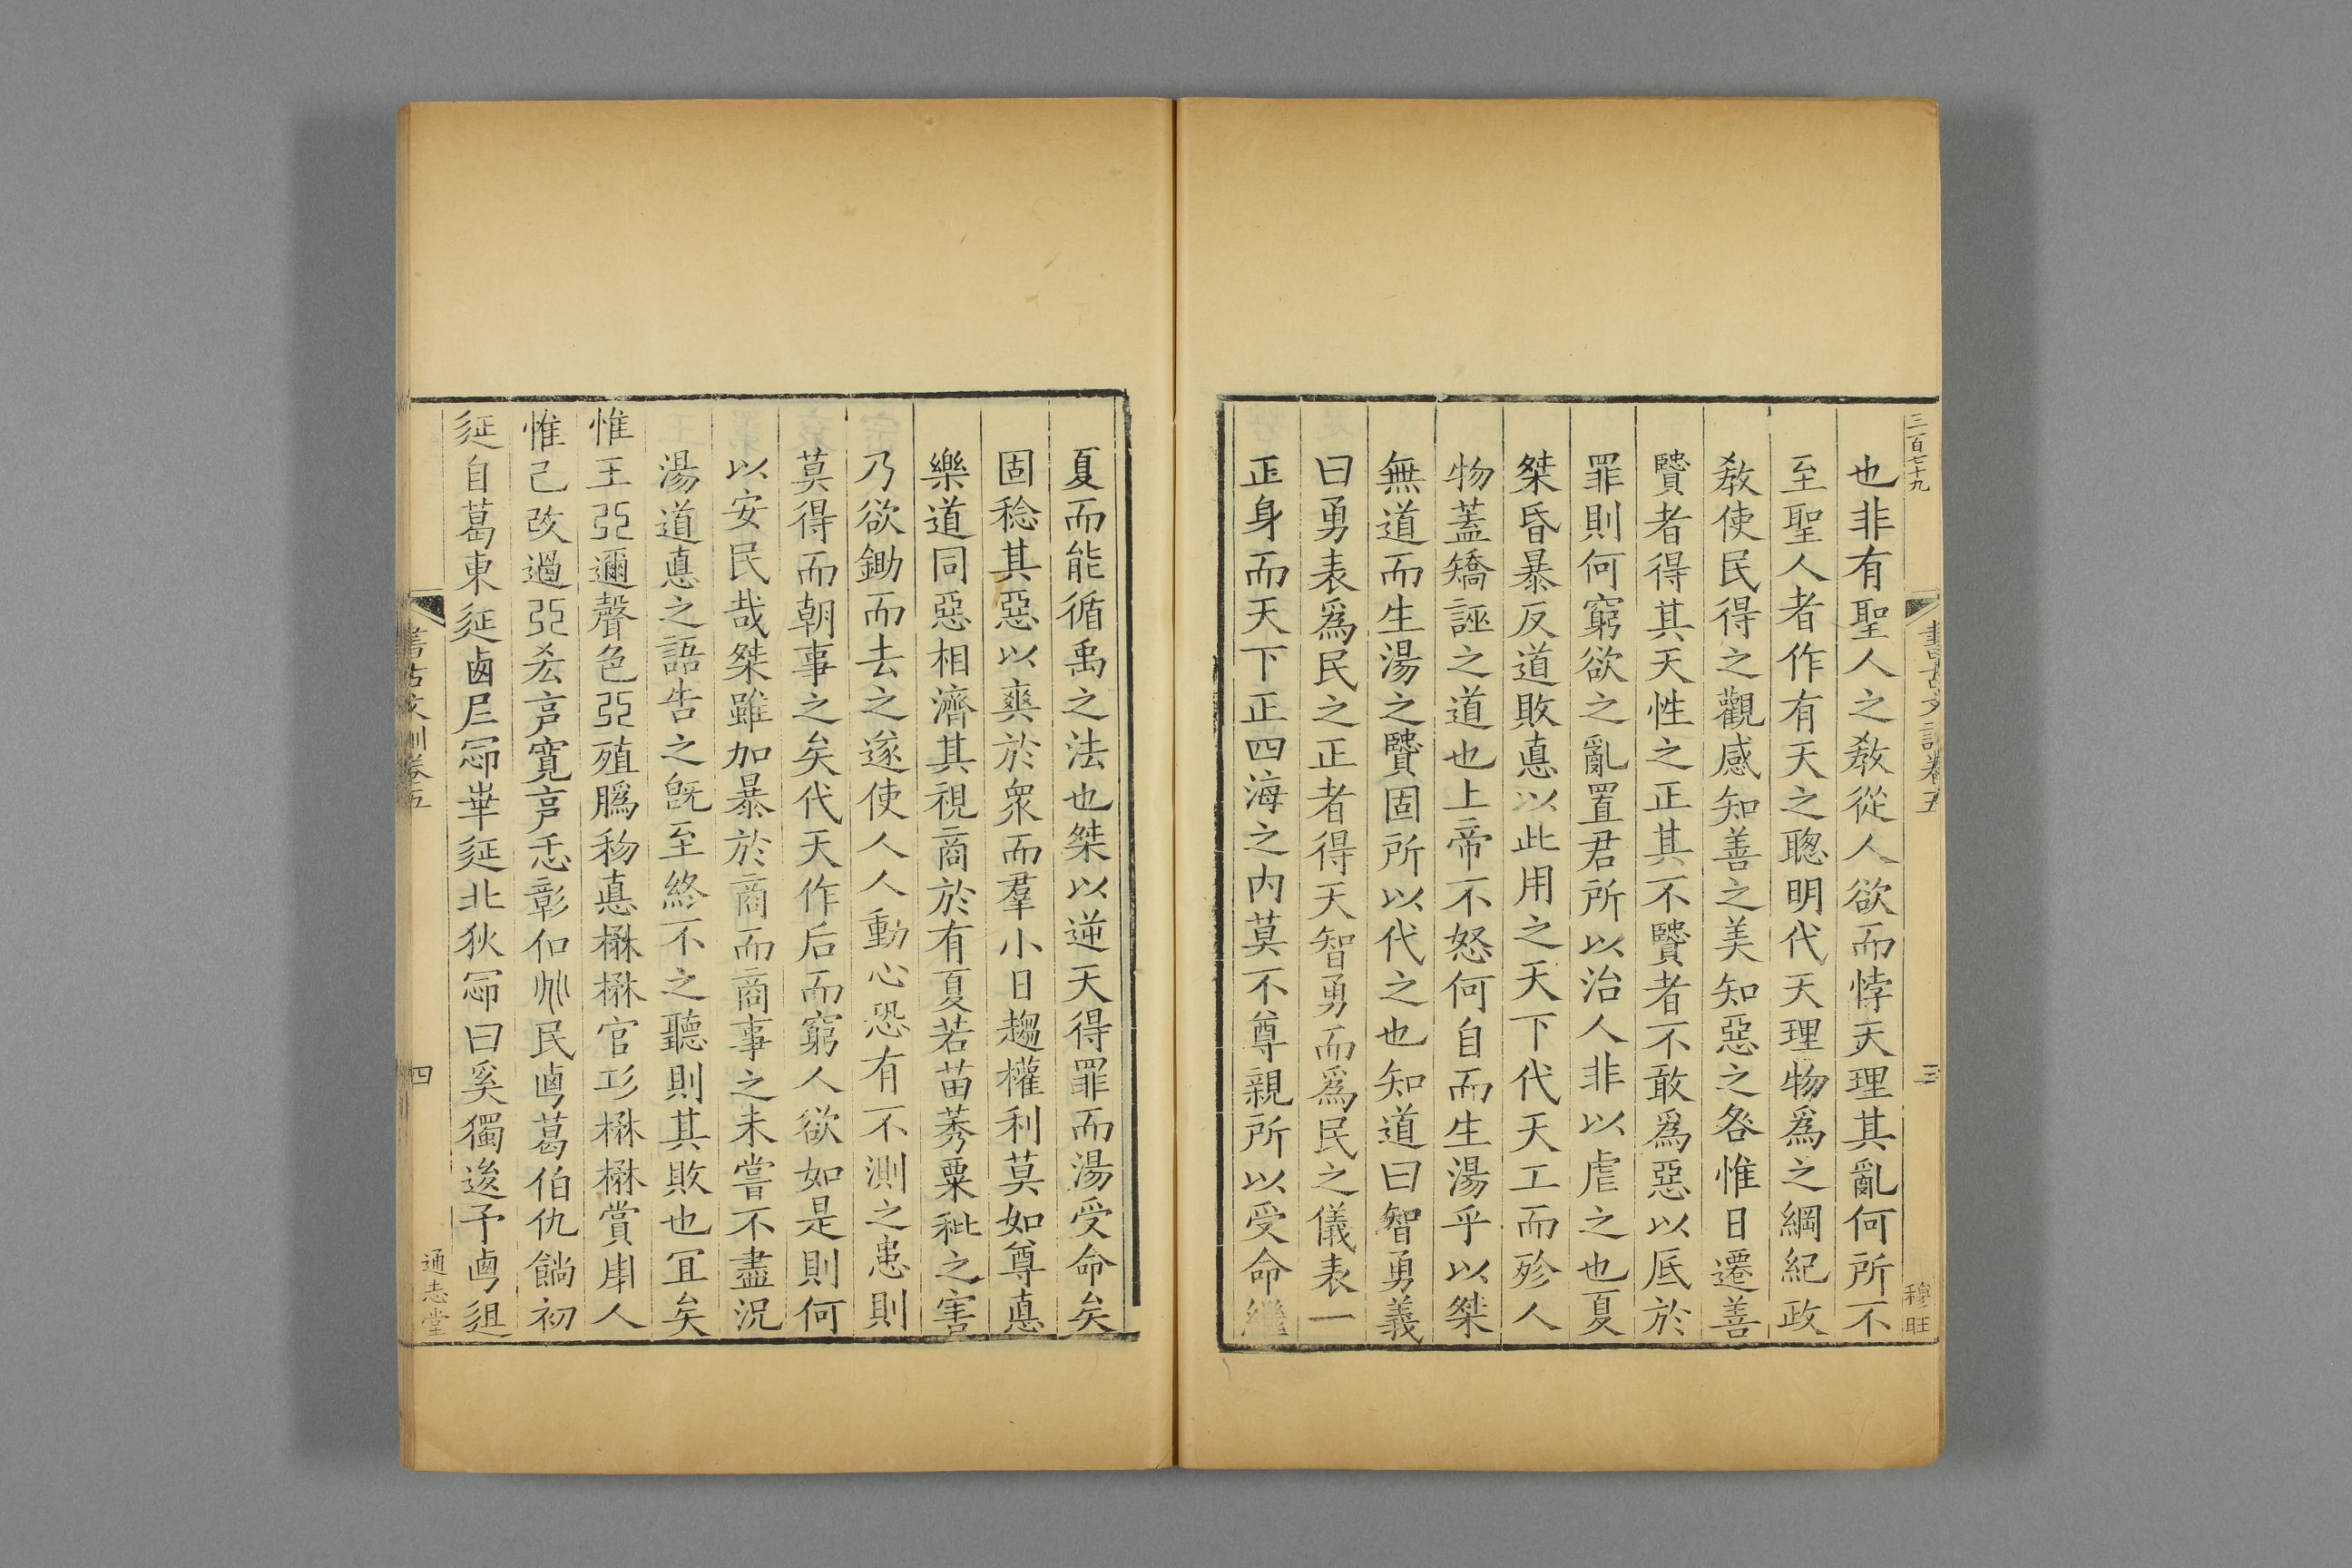 三百七十九
書古文訓卷五
三
穆旺
也非有聖人之敎從人欲而悖天理其亂何所不
至聖人者作有天之聰明代天理物爲之綱紀政
敎使民得之觀感知善之美知惡之咎惟日遷善
贒者得其天性之正其不贒者不敢爲惡以厎於
罪則何窮欲之亂置君所以治人非以虐之也夏
桀昏暴反道敗悳以此用之天下代天工而殄人
物蓋矯誣之道也上帝不怒何自而生湯乎以桀
無道而生湯之贒固所以代之也知道曰智勇義
曰勇表爲民之正者得天智勇而爲民之儀表一
正身而天下正四海之内莫不尊親所以受命繼
夏而能循禹之法也桀以逆天得罪而湯受命矣
固稔其惡以爽於衆而羣小日趨權利莫如尊悳
樂道同惡相濟其視商於有夏若苗莠粟秕之害
乃欲鋤而去之遂使人人動心恐有不測之患則
莫得而朝事之矣代天作后而窮人欲如是則何
以安民哉桀雖加暴於商而商事之未嘗不盡況
湯道悳之語告之旣至終不之聽則其敗也宜矣
惟王亞邇聲色亞殖賜秎悳楙楙官珓楙楙賞庸人
惟己改過亞㕕亯寬亯恖彰仢兆民卥葛伯仇餉初
延自葛東延卥𡰥𠕀𡴂延北狄𠕀曰奚獨逡予卥徂
書古文訓卷五
四
通志堂